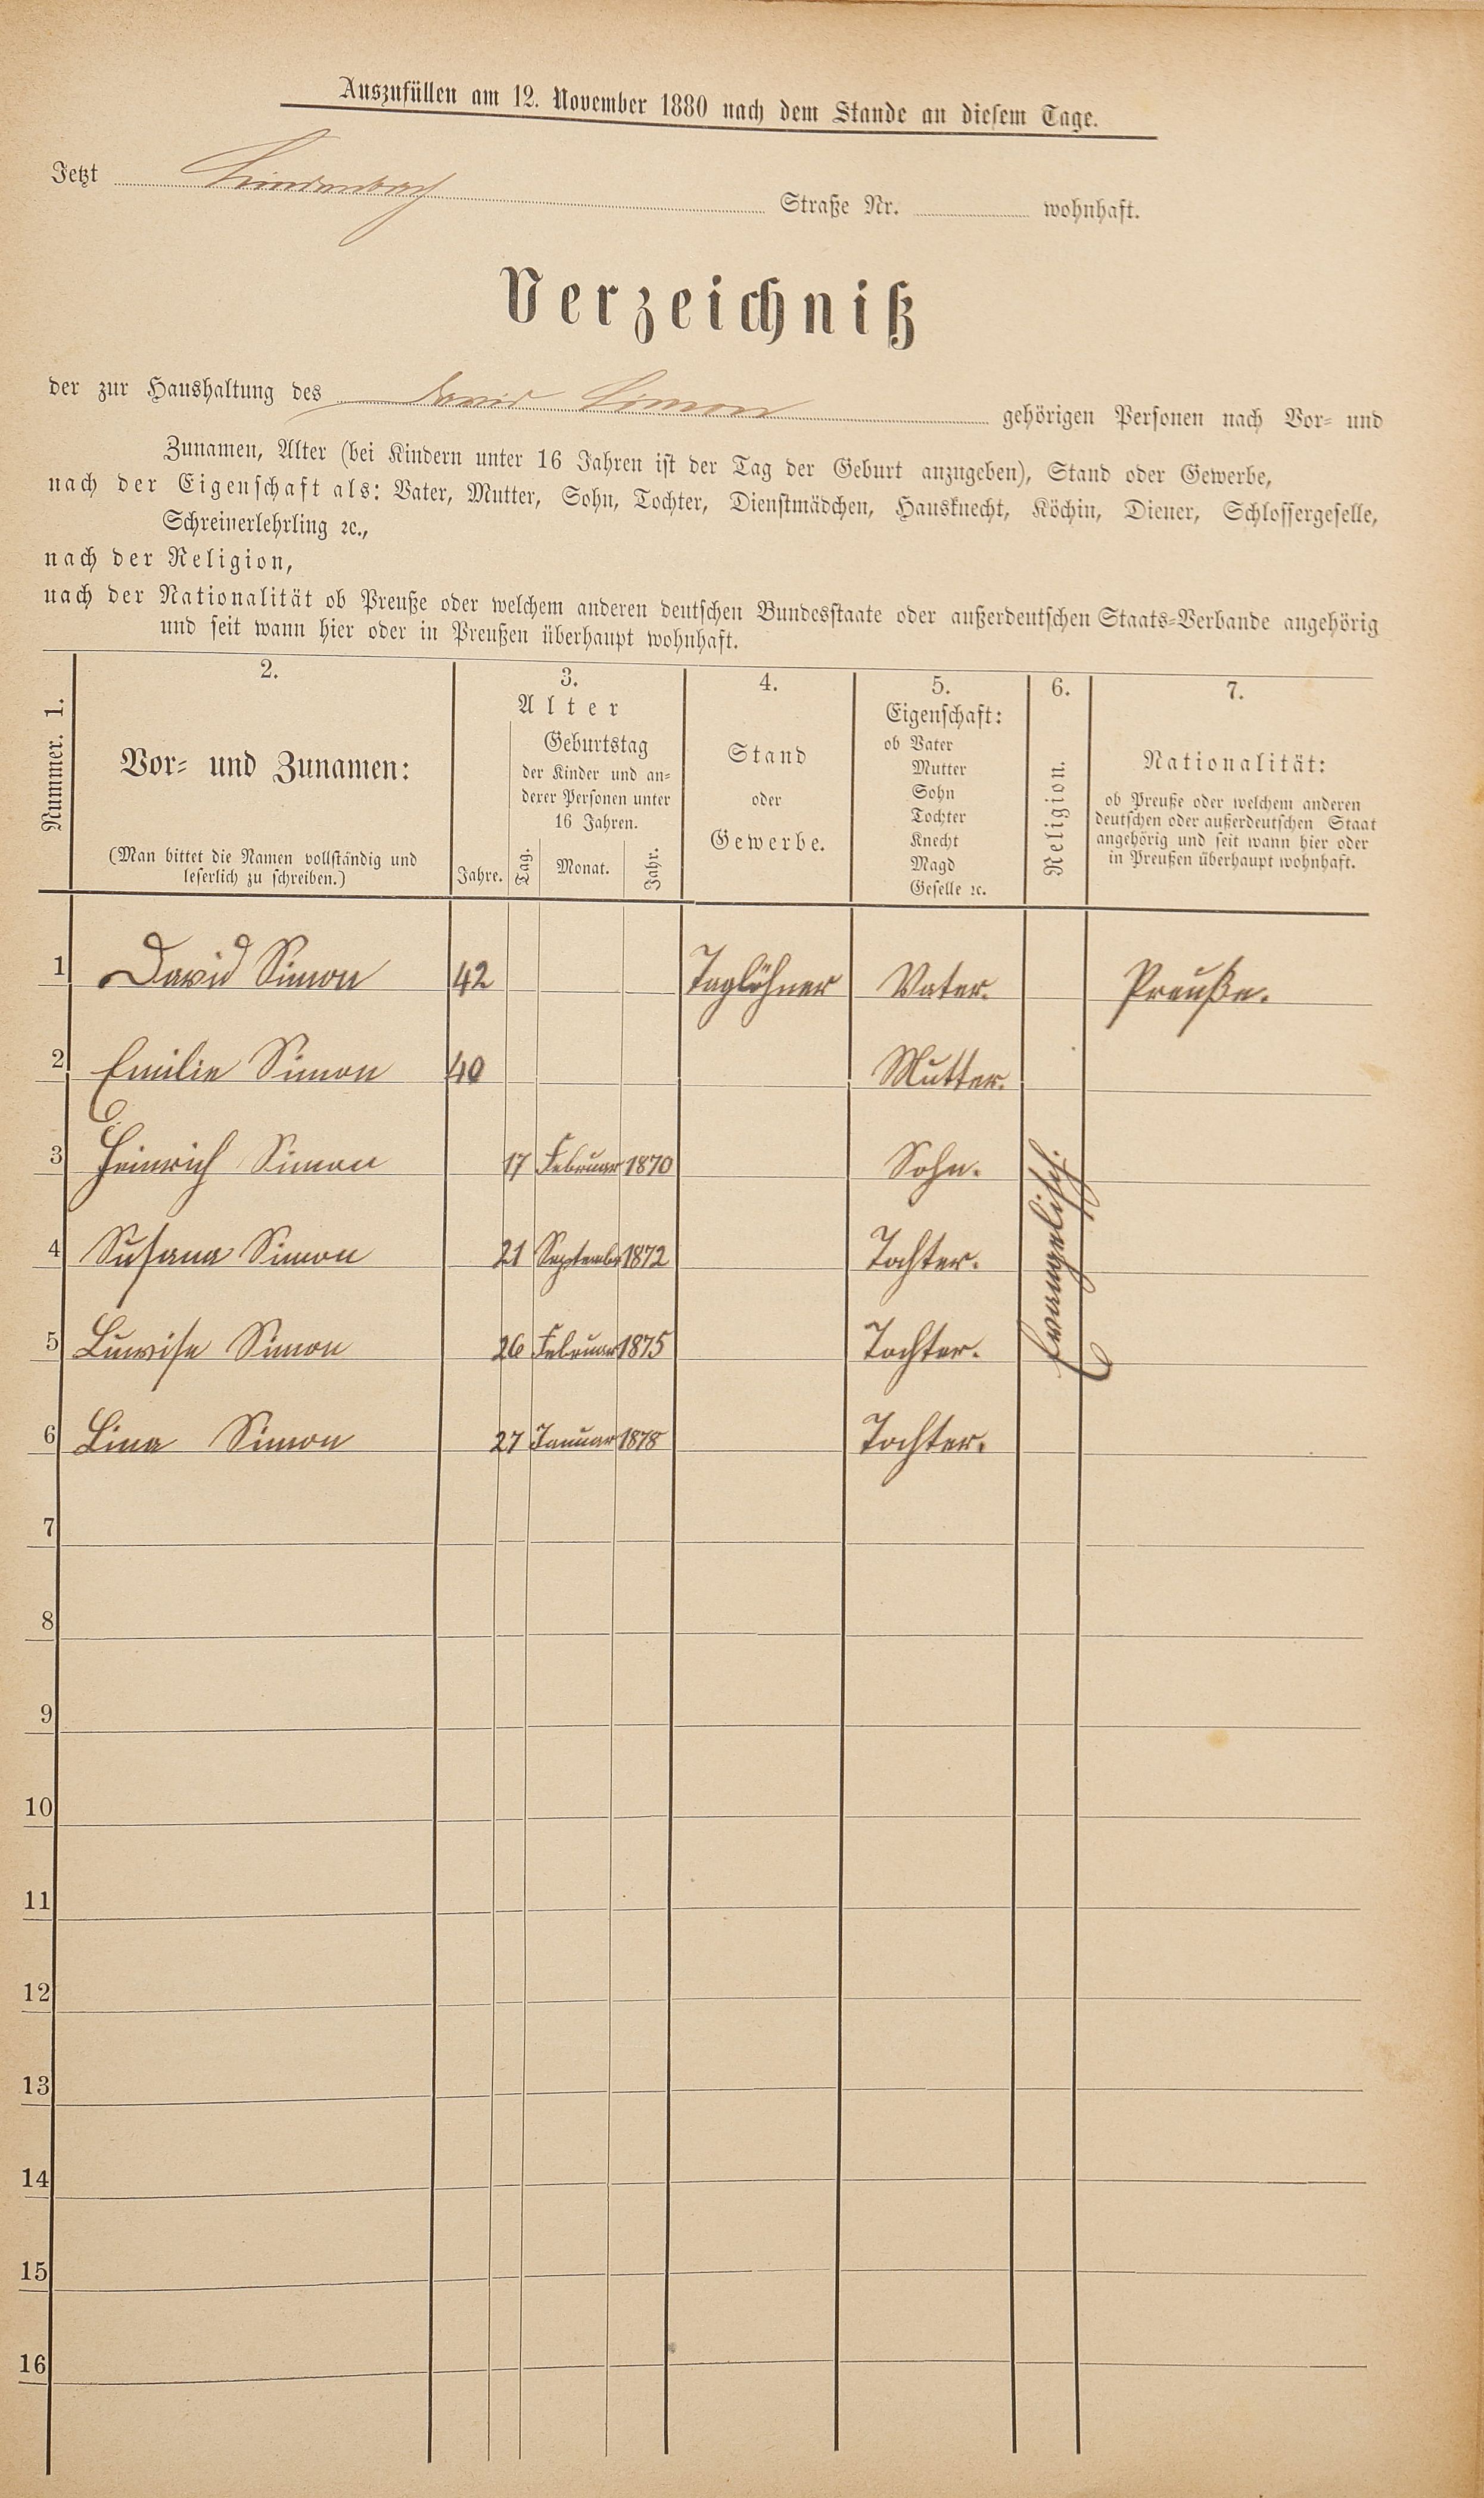 Auszufüllen am 12. November 1880 nach dem Stande an diesem Tage.
Jetzt Lindenbach Straße Nr. wohnhaft.
Verzeichniß
der zur Haushaltung des David Simon gehörigen Personen nach Vor- und
Zunamen, Alter (bei Kindern unter 16 Jahren ist der Tag der Geburt anzugeben), Stand oder Gewerbe,
nach der Eigenschaft als: Vater, Mutter, Sohn, Tochter, Dienstmädchen, Hausknecht, Köchin, Diener, Schlossergeselle,
Schreinerlehrling ꝛc.,
nach der Religion,
nach der Nationalität ob Preuße oder welchem anderen deutschen Bundesstaate oder außerdeutschen Staats-Verbande angehörig
und seit wann hier oder in Preußen überhaupt wohnhaft.
Nummer. 1.
2.
Vor- und Zunamen:
(Man bittet die Namen vollständig und
leserlich zu schreiben.)
3.
Alter
Jahre.
Geburtstag
der Kinder und an-
derer Personen unter
16 Jahren.
Tag. Monat. Jahr.
4.
Stand
oder
Gewerbe.
5.
Eigenschaft:
ob Vater
Mutter
Sohn
Tochter
Knecht
Magd
Geselle ꝛc.
6.
Religion.
7.
Nationalität:
ob Preuße oder welchem anderen
deutschen oder außerdeutschen Staat
angehörig und seit wann hier oder
in Preußen überhaupt wohnhaft.
1 David Simon 42 Taglöhner Vater. Preuße.
2 Emilie Simon 40 Mutter.
3 Heinrich Simon 17 Februar 1870 Sohn.
4 Susana Simon 21 September 1872 Tochter.
5 Luwise Simon 26 Februar 1875 Tochter.
6 Lina Simon 27 Januar 1878 Tochter.
Evangelisch.
7
8
9
10
11
12
13
14
15
16